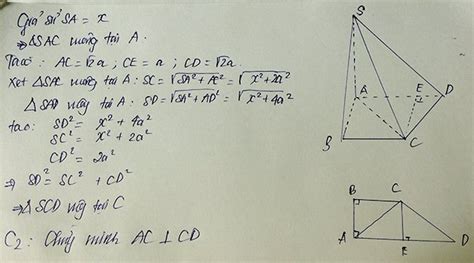 Giả sử SA = x
⇒ ΔSAC vuông tại A.
Ta có: AC = √2a ; CE = a ; CD = √2a.
Xét ΔSAC vuông tại A: SC = √(SA² + AC²) = √(x² + 2a²)
ΔSAD vuông tại A: SD = √(SA² + AD²) = √(x² + 4a²)
ta có: SD² = x² + 4a²
SC² = x² + 2a²
CD² = 2a²
⇒ SD² = SC² + CD²
⇒ ΔSCD vuông tại C
C2: Chứng minh AC ⊥ CD
S
A E D
B C
B C
A E D